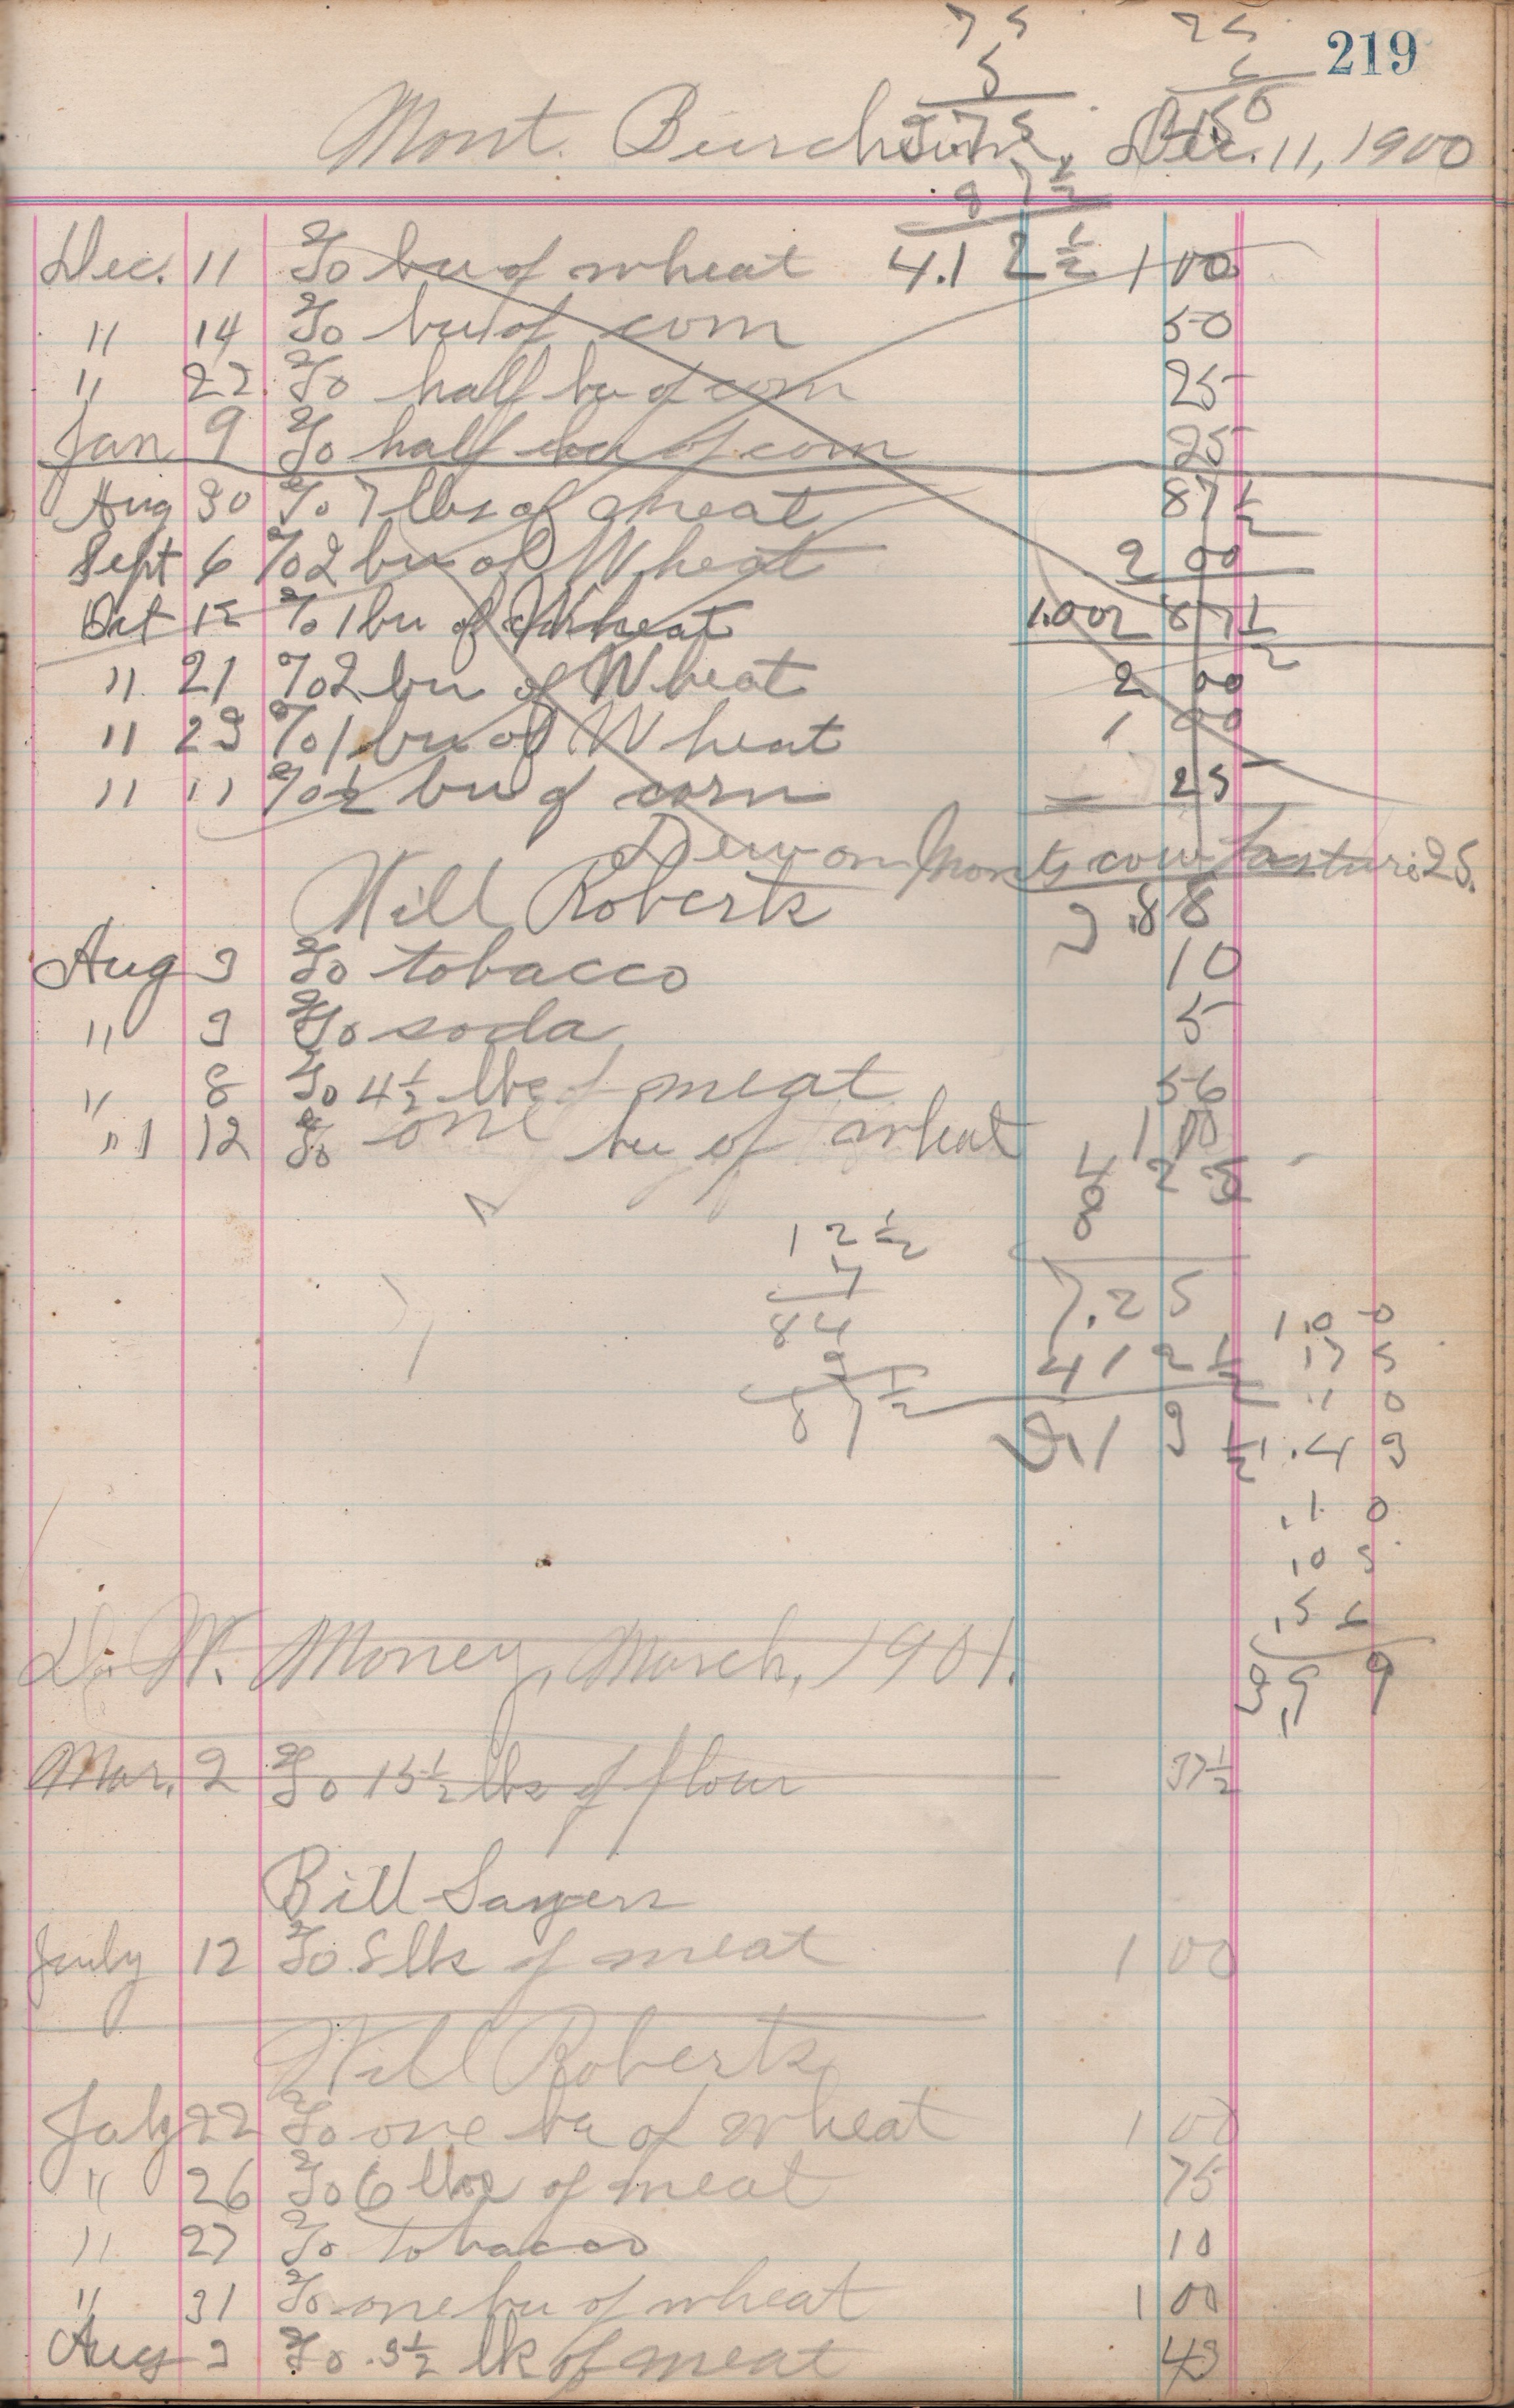 75 75 219
5
3.75 150
Mont. Burch Dec. 11, 1900
87½
Dec. 11 To bu of wheat 4.12½ 1 00
" 14 To bu of corn 50
" 22 To half bu of corn 25
Jan 9 To half bu of corn 25
Aug 30 To 7 lbs of meat 87½
Sept 6 To 2 bu of Wheat 2 00
Oct 12 To 1 bu of Wheat 1.00 2 87½
" 21 To 2 bu of Wheat 2 00
" 23 To 1 bu of Wheat 1 00
" " To ½ bu of corn 25
Due on Monts cow pasture 25.
Will Roberts 3.88
Aug 3 To tobacco 10
" 3 To soda 5
" 8 To 4½ lbs of meat 56
" 12 To one bu of wheat 1 00
4 25
12½
7
7.25
84 1.00
3 4 12½ .75
87½ .10
3.1 3½ 1.43
.10
.05
.56
D. W. Money, March, 1901.
3.99
Mar. 2 To 15½ lbs of flour 37½
Bill Sayers
July 12 To 8 lbs of meat 1 00
Will Roberts
July 22 To one bu of wheat 1 00
" 26 To 6 lbs of meat 75
" 27 To tobacco 10
" 31 To one bu of wheat 1 00
Aug 3 To 3½ lbs of meat 43